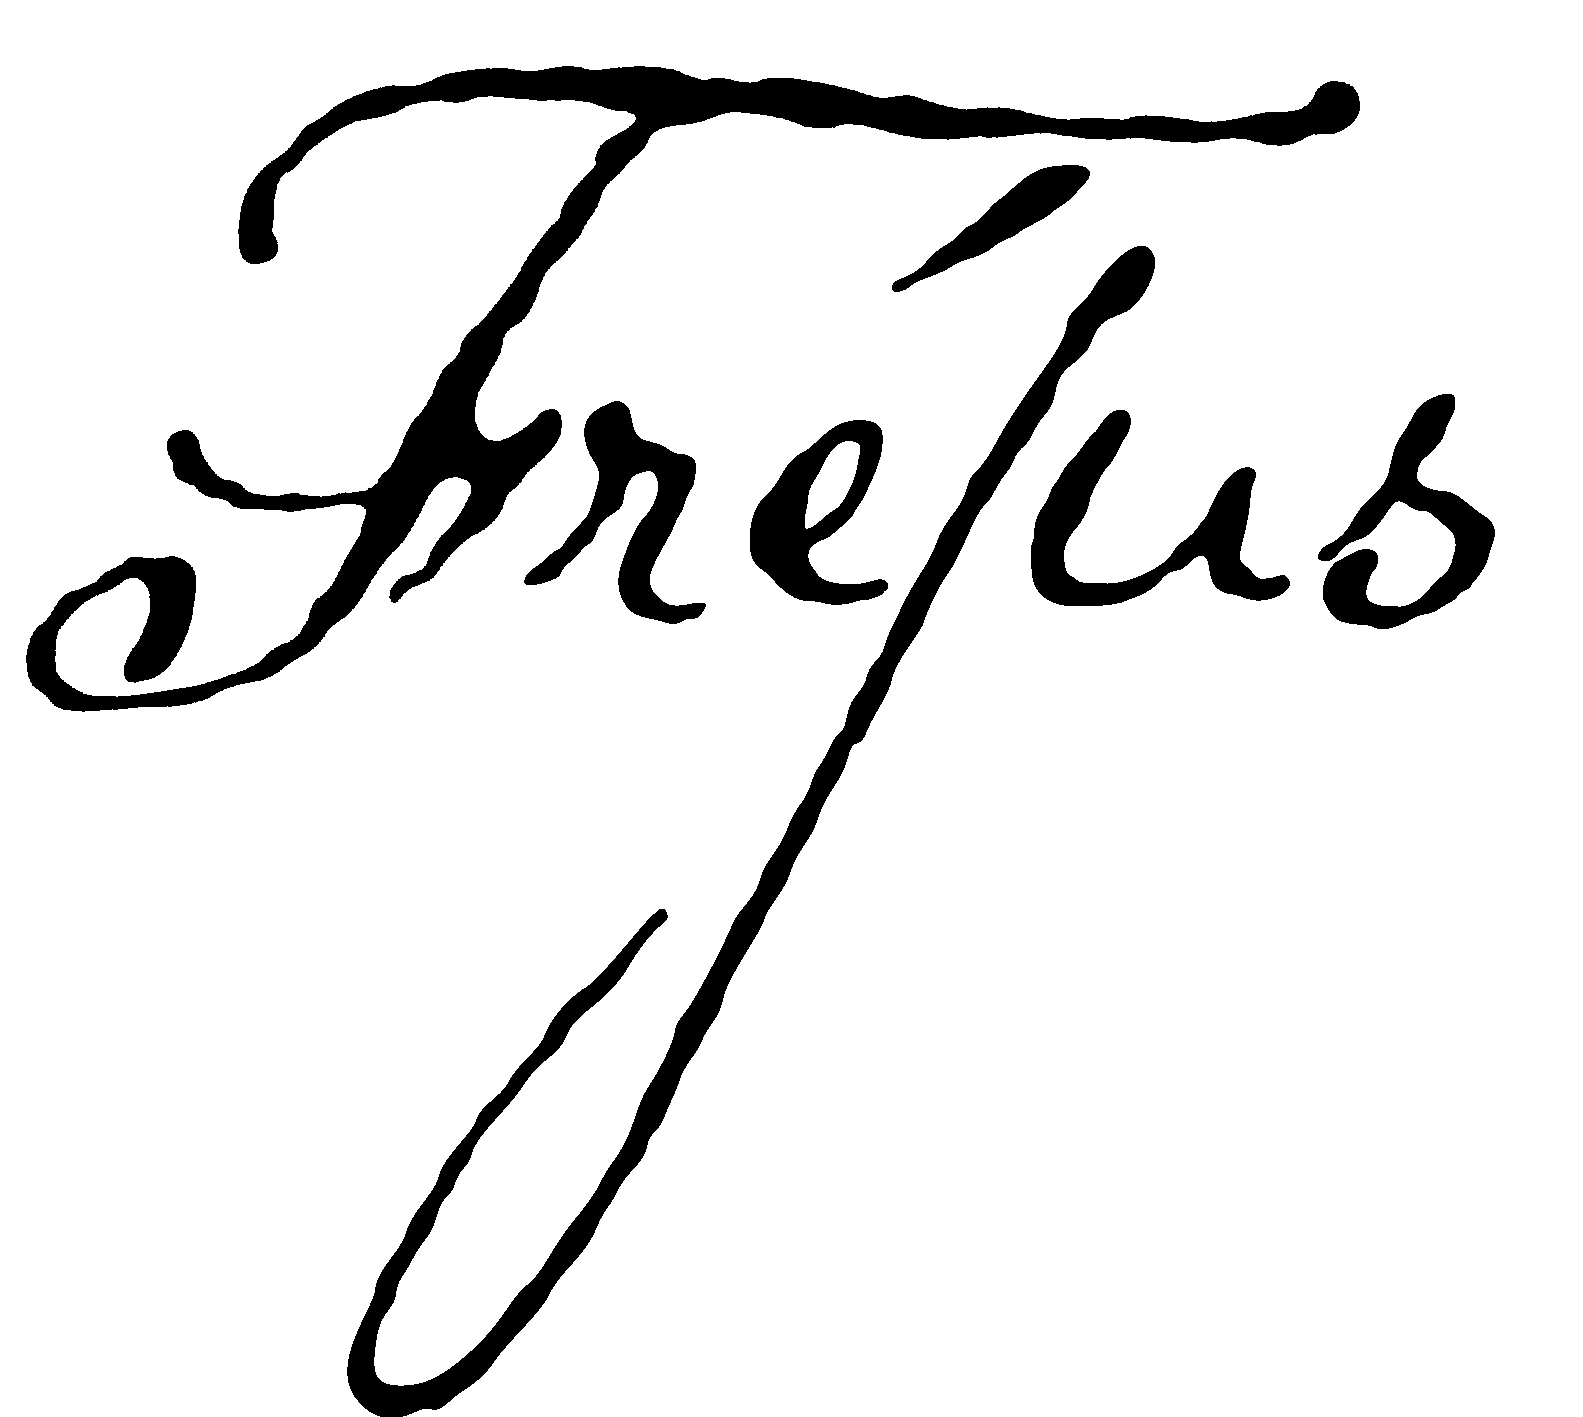 Fréjus